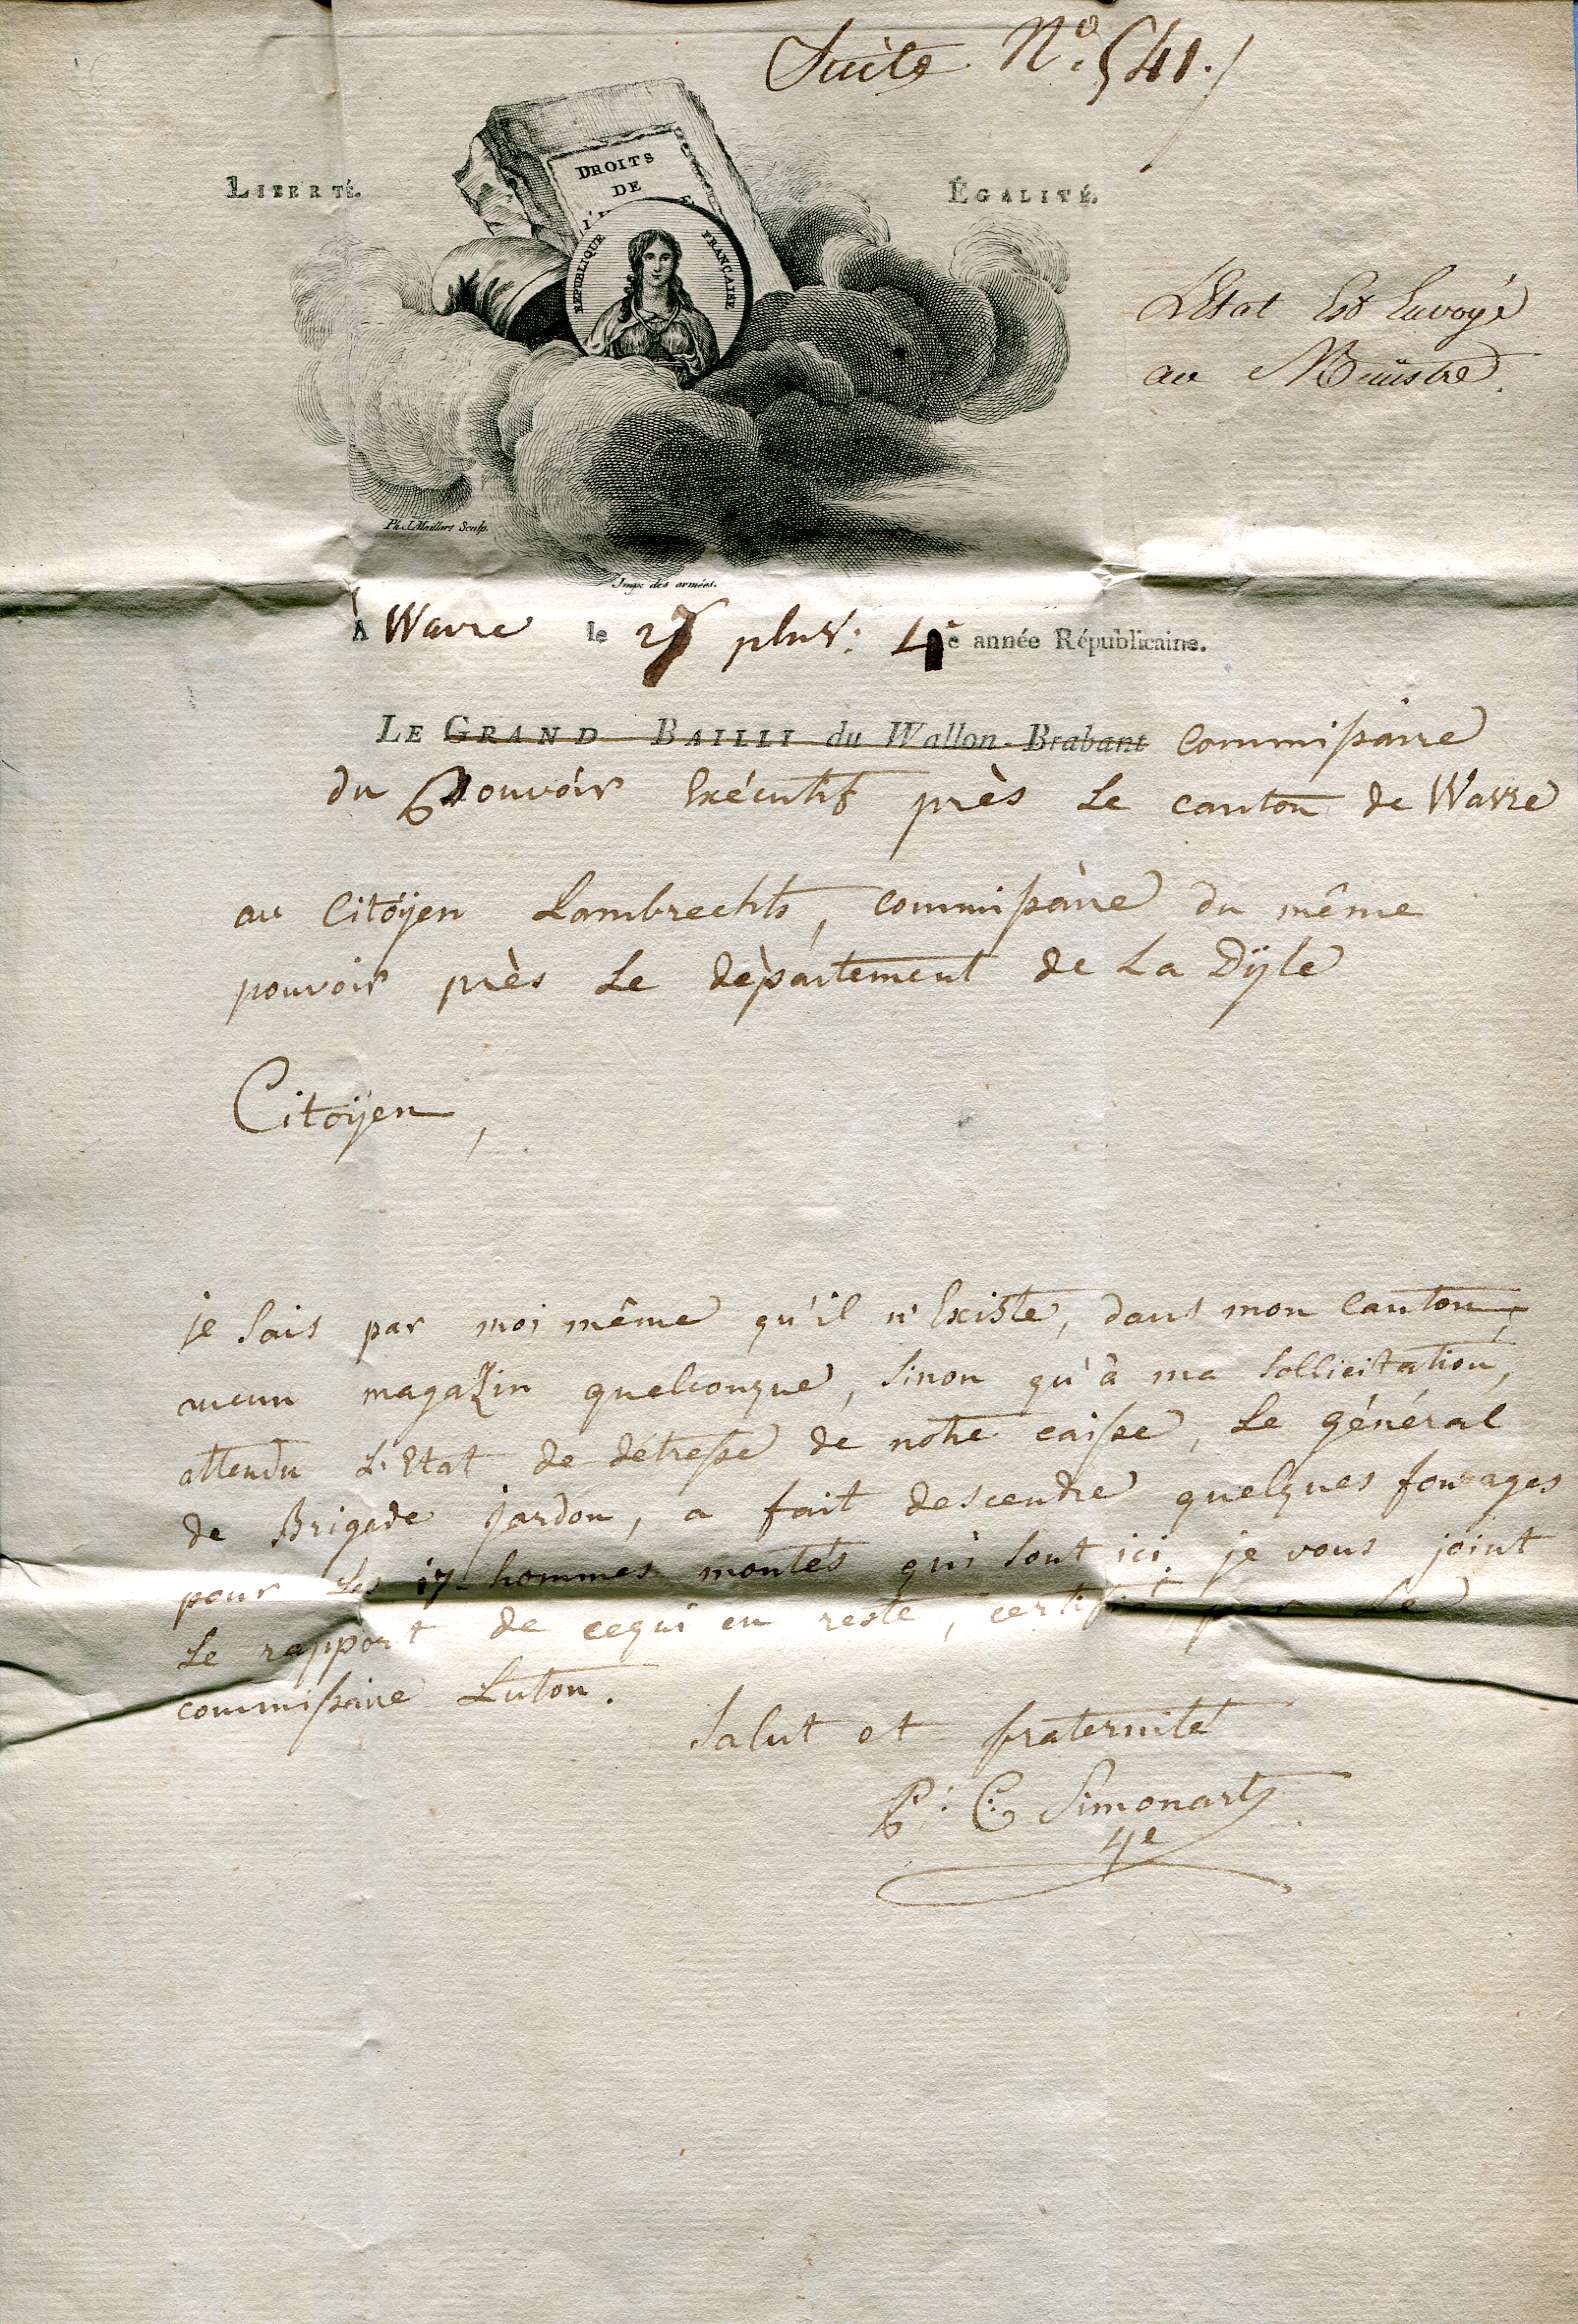 Suite N.º 541./
LIBERTÉ.
ÉGALITÉ.
DROITS
DE
RÉPUBLIQUE FRANÇAISE
L'Etat Est Envoyé
au Ministre.
Ph. J. Maillart Sculp.
Impr. des armées.
À Wavre le pluv: 4e année Républicaine.
LE GRAND BAILLI du Wallon-Brabant Commissaire
du Pouvoir Exécutif près Le canton de Wavre
au Citoÿen Lambrechts, Commissaire du même
pouvoir près Le département de La Dÿle
Citoÿen,
je sais par moi même qu'il n'Existe, dans mon Canton,
aucun magazin quelconque, sinon qu'à ma sollicitation,
attendu L'Etat de détresse de notre caisse, Le général
de Brigade jardon, a fait descendre quelques fourages
pour Les 17 hommes montés qui sont ici. je vous joint
Le rapport de cequi en reste, certifié par Le
commissaire Luton.
Salut et fraternité
P: C: Simonart